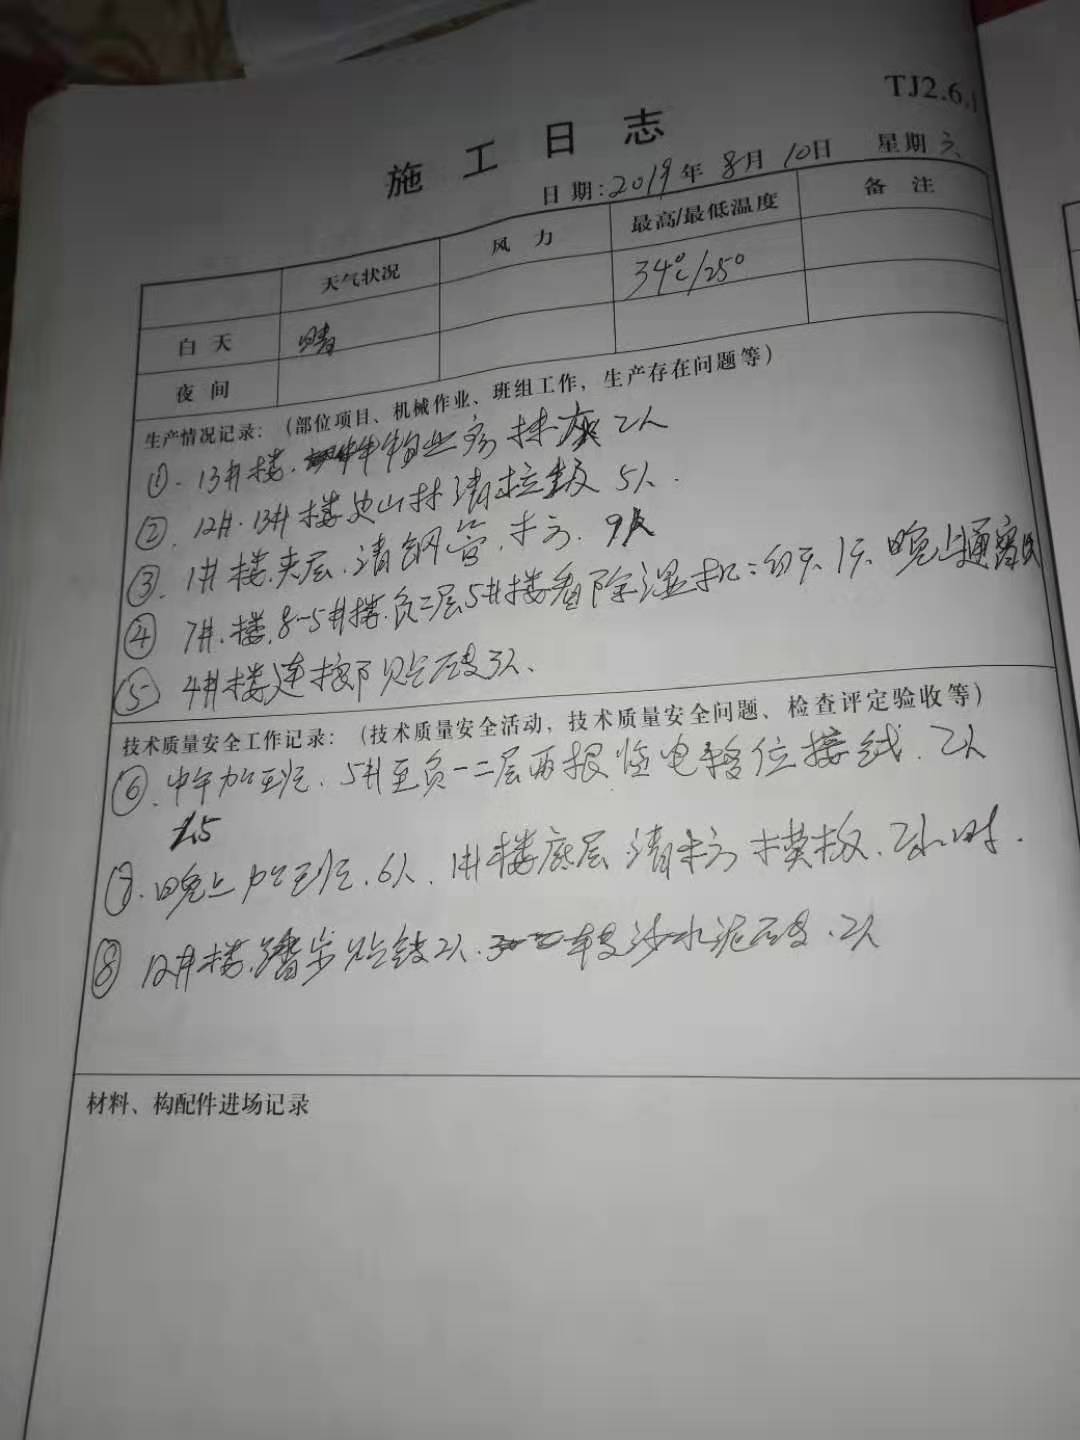 TJ2.6.1
施工日志
日期:2019年8月10日 星期六
天气状况 风力 最高/最低温度 备注
白天 晴 34℃/25°
夜间
生产情况记录:(部位项目、机械作业、班组工作,生产存在问题等)
①.13#楼.物业房抹灰2人
②.12#.13#楼 清垃圾5人.
③.1#楼.夹层.清钢管.木方.9人
④ 7#.楼.8-5#楼.负二层5#楼看除湿机:白天.1天.晚上通宵
⑤ 4#楼连接部贴砖3人.
技术质量安全工作记录:(技术质量安全活动,技术质量安全问题、检查评定验收等)
⑥.中午加班.5#至负一二层两根临电移位接线.2人
1.5
⑦.晚上加班.6人.1#楼底层清木方模板.2小时.
⑧ 12#楼.踏步贴砖2人.转沙水泥砖.2人
材料、构配件进场记录